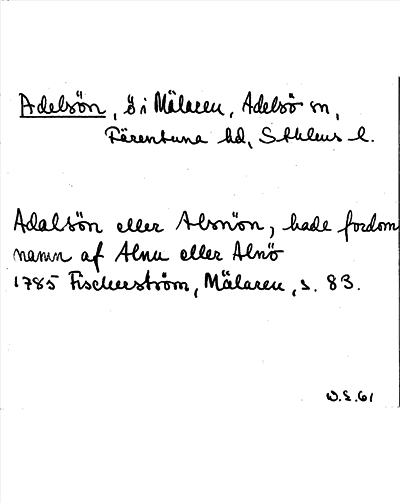 Adelsön, ö i Mälaren, Adelsö sn,
Färentuna hd, Sthlms l.
Adalsön eller Alsnön, hade fordom
namn af Alnu eller Alnö
1785 Fischerström, Mälaren, s. 83.
O.S.61